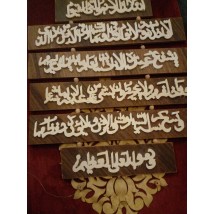 الله لا إله إلا هو الحي القيوم
لا تأخذه سنة ولا نوم له ما في السموات وما في الأرض من ذا الذي
يشفع عنده إلا بإذنه يعلم ما بين أيديهم وما
خلفهم ولا يحيطون بشيء من علمه إلا بما شاء
وسع كرسيه السموات والأرض ولا يؤده حفظهما
وهو العلي العظيم